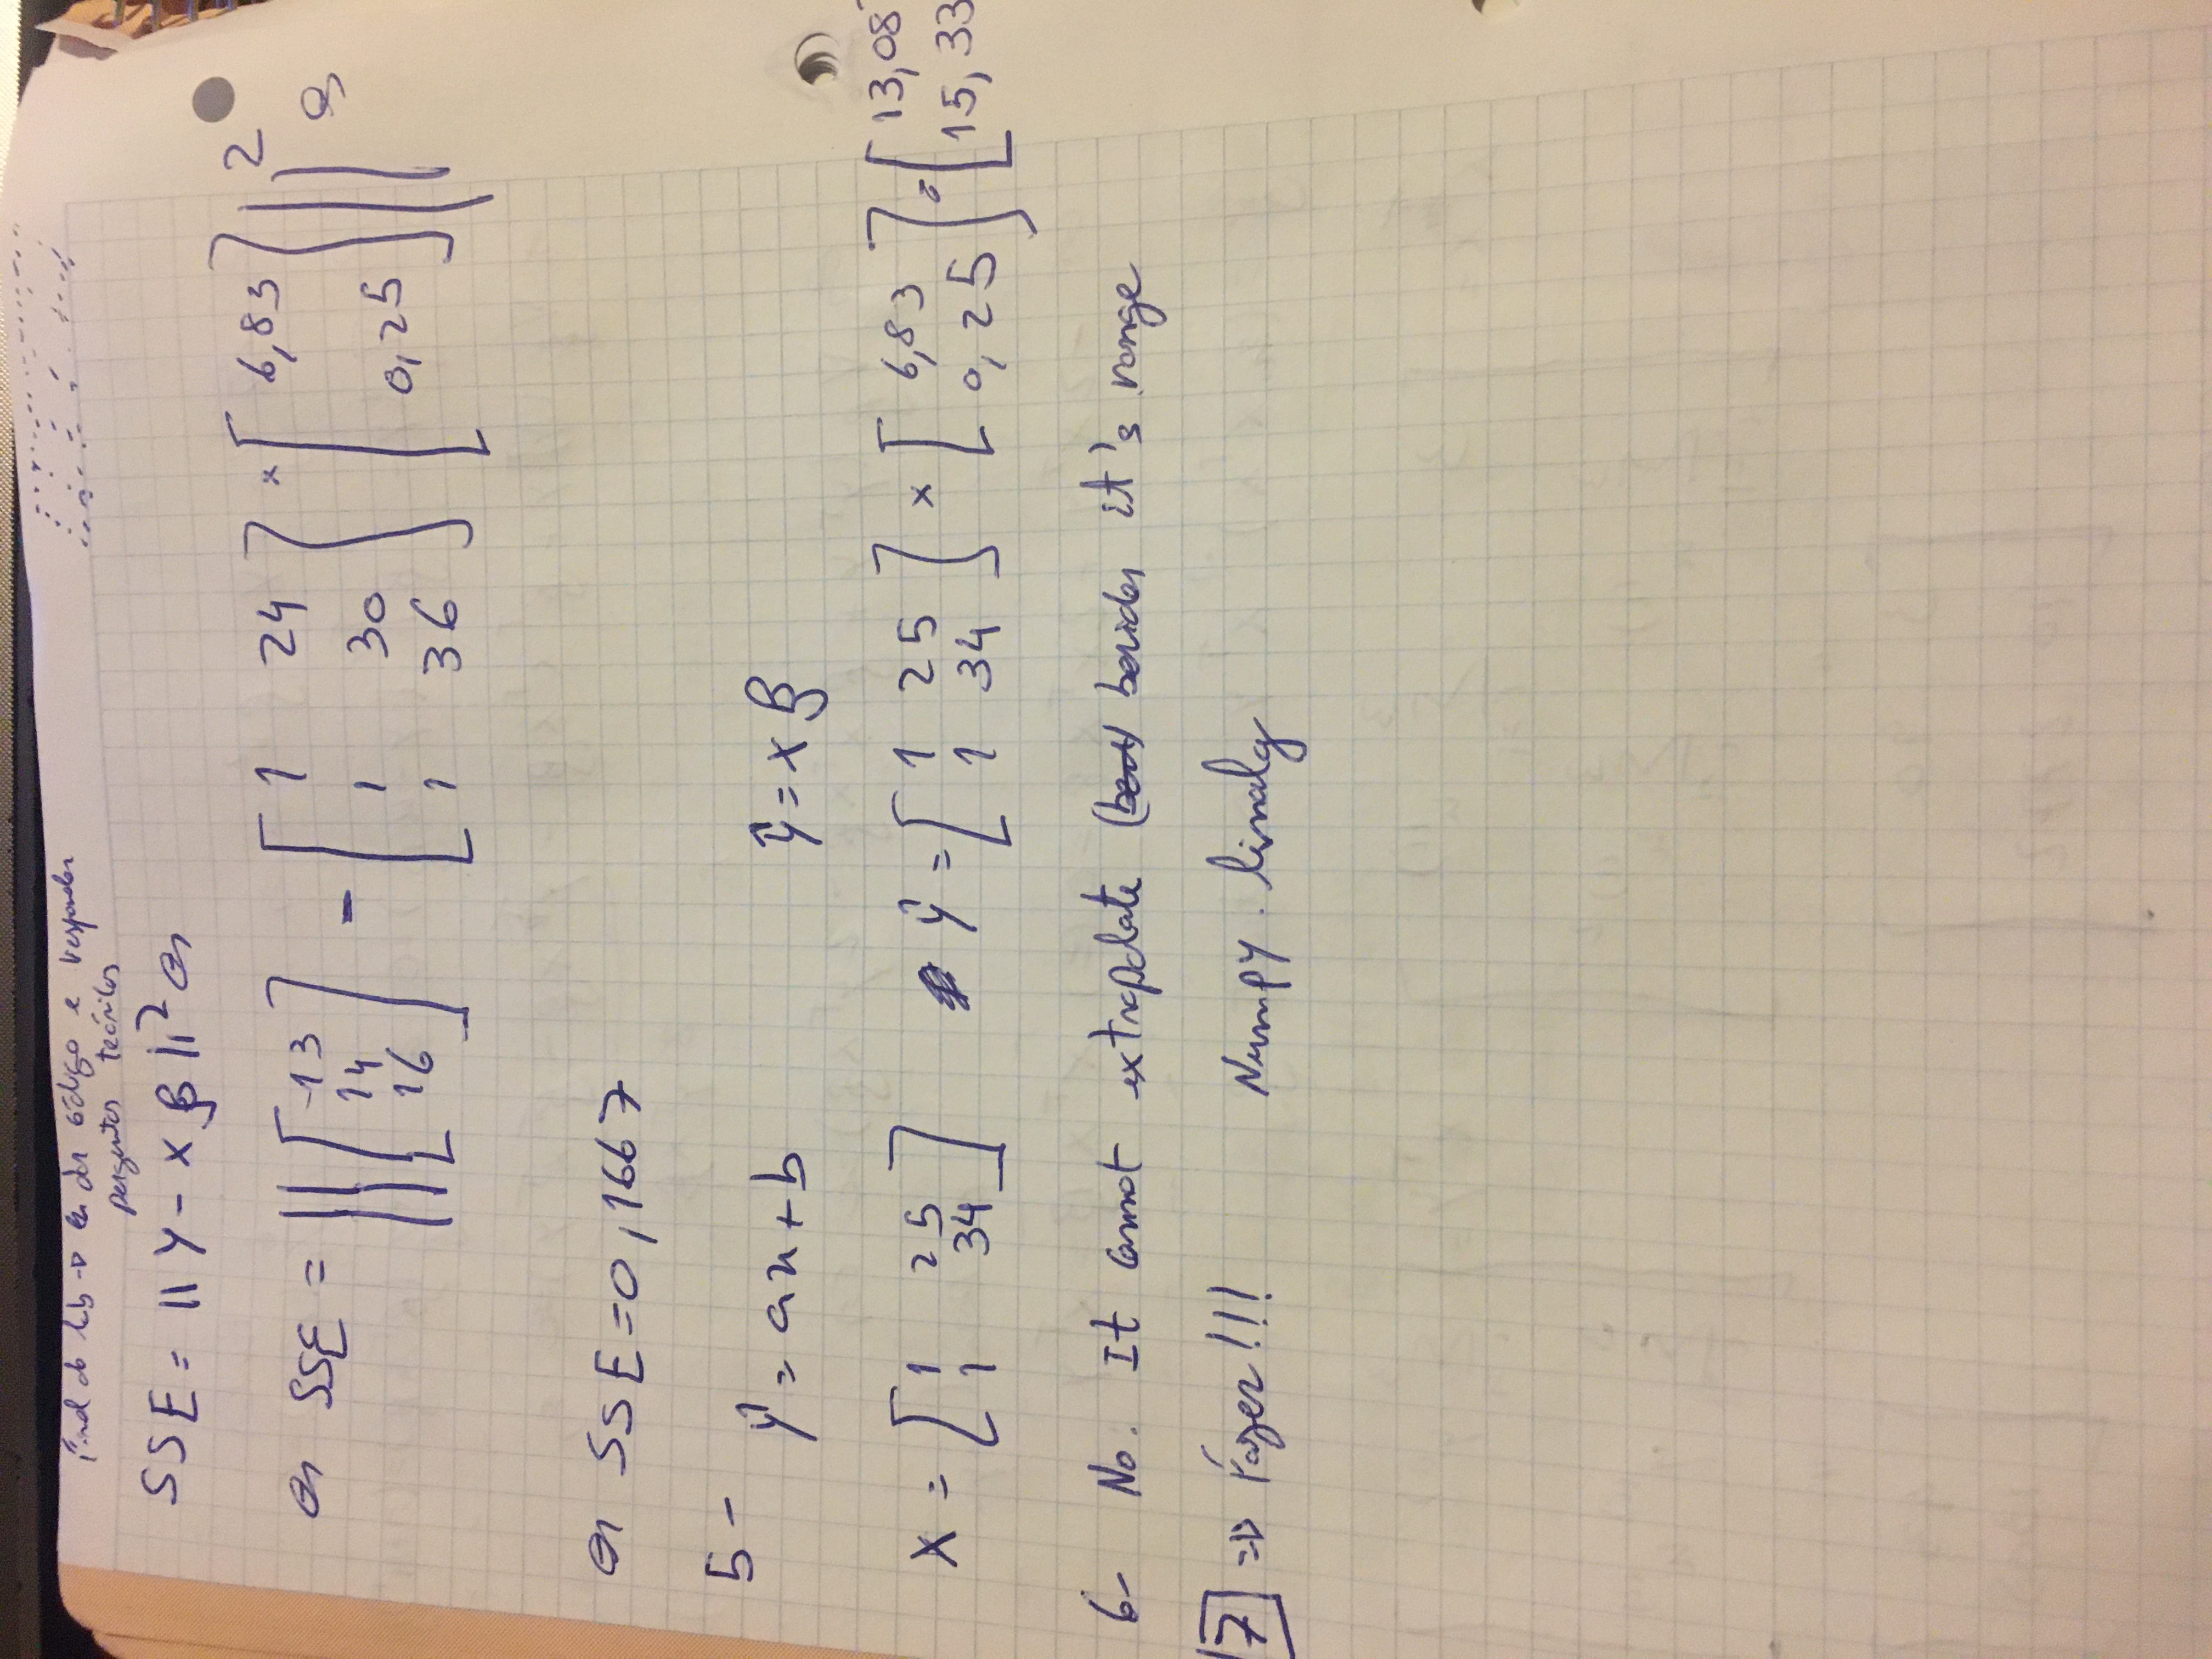 Final do lab → dar código e responder
perguntas teóricas
SSE = || y - x β ||² ⇔
⇔ SSE = || [ 13 14 16 ] - [ 1 24 1 30 1 36 ] × [ 6,83 0,25 ] ||² ⇔
⇔ SSE = 0,1667
5 -
ŷ = ax + b ŷ = x β
X = [ 1 25 1 34 ] ŷ = [ 1 25 1 34 ] × [ 6,83 0,25 ] = [ 13,08 15,33
6- No. It cannot extrapolate besides it's range
7 ⇒ Fazer!!! Numpy.linalg